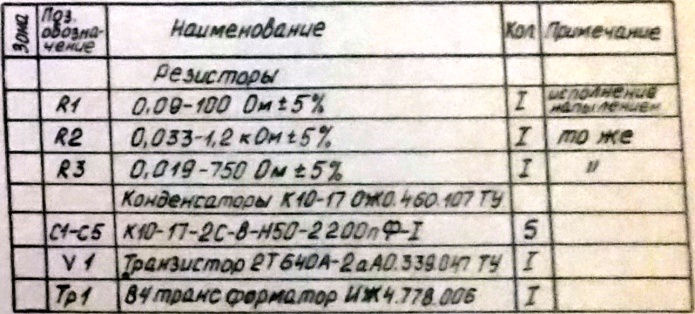 Зона Поз. обозна-чение Наименование Кол Примечание
Резисторы
R1 0,09-100 Ом ± 5% I исполнение напылением
R2 0,033-1,2 кОм ± 5% I то же
R3 0,019-750 Ом ± 5% I "
Конденсаторы К10-17 ОЖ0.460.107 ТУ
С1-С5 К10-17-2С-В-Н50-2200пФ-I 5
V1 Транзистор 2Т640А-2 аА0.339.047 ТУ I
Тр1 ВЧ трансформатор ИЖ4.778.006 I